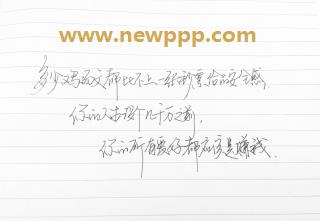 www.newppp.com
多少鸡汤文都比不上一张钞票给的安全感
你的人未没个几千万之前,
你的所有爱好都应该是赚钱.